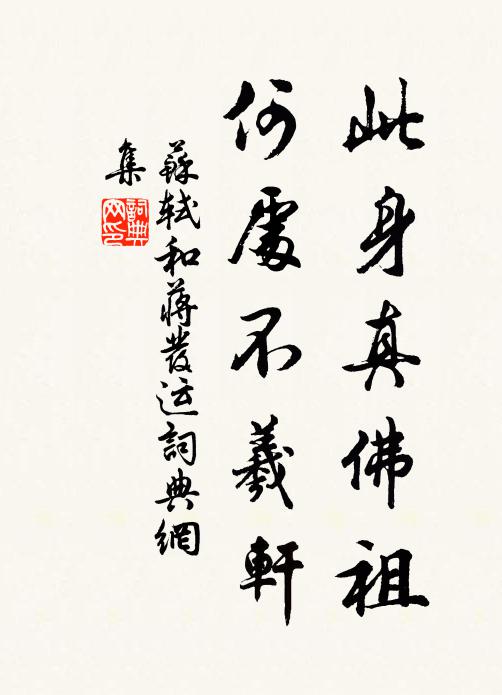 此身真佛祖
何處不羲軒
蘇軾和蔣發运詞典網
集
詞典网印